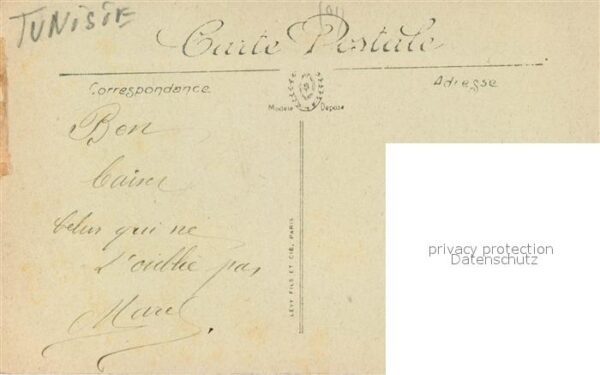 TUNISIE
(91)
Carte Postale
Correspondance
Adresse
Modèle Déposé
Bon
baiser
Celui qui ne
t'oublie pas
Marcel
LÉVY FILS ET CIE, PARIS
privacy protection
Datenschutz